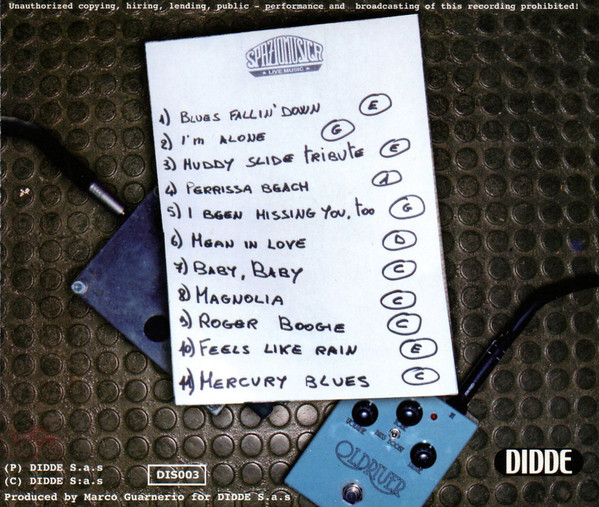 Unauthorized copying, hiring, lending, public - performance and broadcasting of this recording prohibited!
SPAZIOMUSICA
★ LIVE MUSIC ★
1) BLUES FALLIN' DOWN E
2) I'm ALONE G
3) MUDDY SLIDE TRIBUTE E
4) PERRISSA BEACH A
5) I BEEN MISSING YOU, TOO G
6) MEAN IN LOVE D
7) BABY, BABY C
8) MAGNOLIA C
9) ROGER BOOGIE C
10) FEELS LIKE RAIN E
11) MERCURY BLUES C
OLDRIVER
DIDDE
(P) DIDDE S.a.s
(C) DIDDE S:a.s
DIS003
Produced by Marco Guarnerio for DIDDE S.a.s